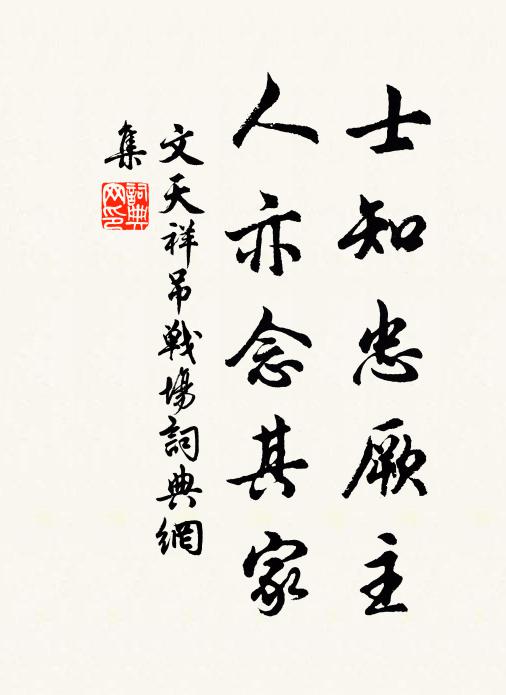 士知忠厥主
人亦念其家
文天祥吊戰場詞典網
集
詞典網印